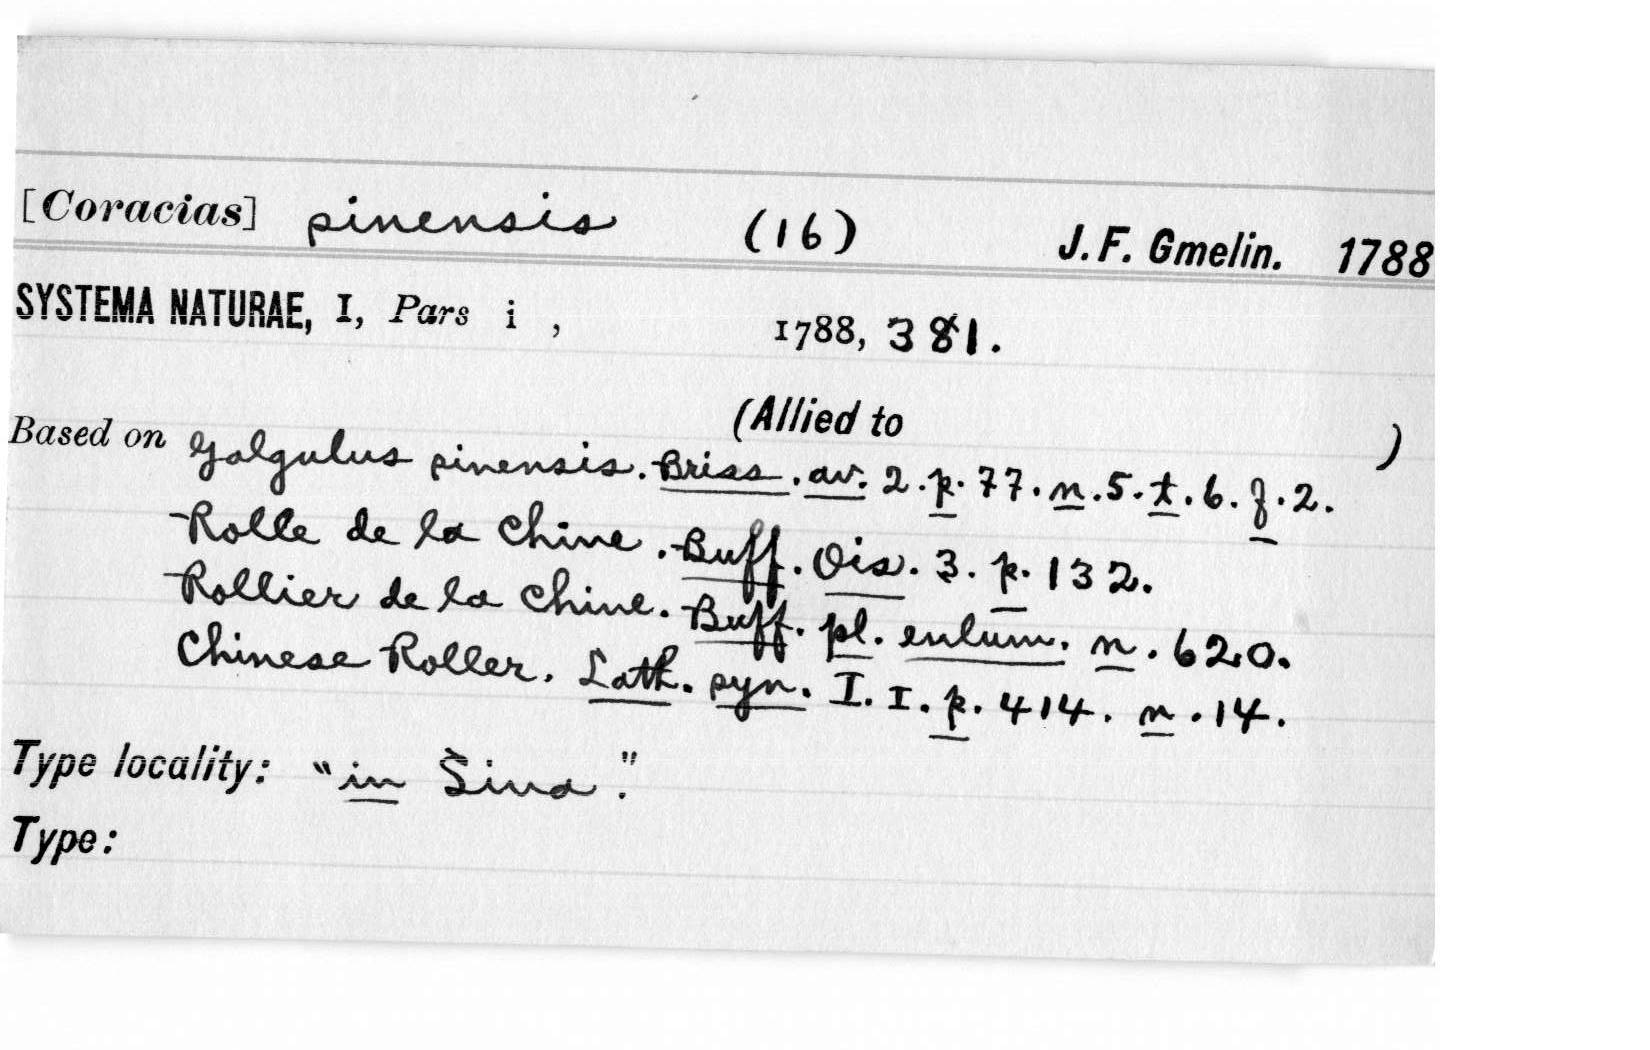 [Coracias] sinensis (16) J. F. Gmelin. 1788
SYSTEMA NATURAE, I, Pars i , 1788, 381.
(Allied to )
Based on Galgulus sinensis. Briss. av. 2. p. 77. n. 5. t. 6. f. 2.
Rolle de la Chine. Buff. Ois. 3. p. 132.
Rollier de la Chine. Buff. pl. enlum. n. 620.
Chinese Roller. Lath. syn. I. I. p. 414. n. 14.
Type locality: "in Sina."
Type: